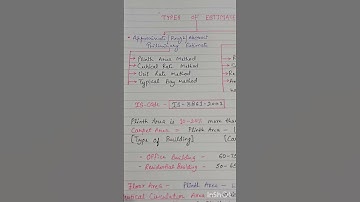 TYPES OF ESTIMATE
Approximate | Rough | Abstract
Preliminary Estimate
Plinth Area Method
Cubical Rate Method
Unit Rate Method
Typical Bay Method
IS-Code -
Plinth Area is more than
Carpet Area = Plinth Area - (
[Type of Building] [Car
- Office Building - 60-75
- Residential Building - 50-65
Floor Area = Plinth Area -
Vertical Circulation Area